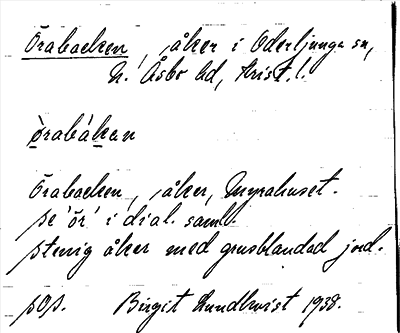 Örabacken, åker i Oderljunga sn,
N. Åsbo hd, Krist. l.
òrabákan
Örabacken, åker, Myrahuset.
se 'ör' i dial. saml.
stenig åker med grusblandad jord.
sos. Birgit Lundkvist 1938.